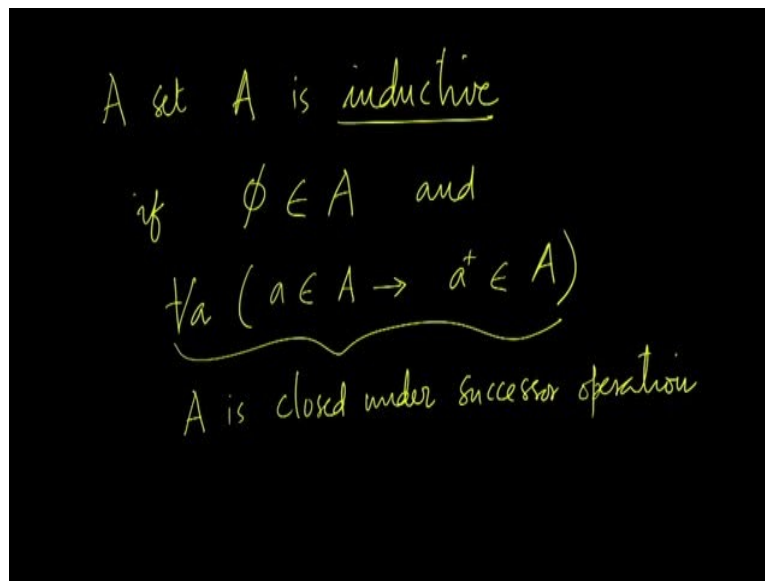 A set A is inductive
if ϕ ∈ A and
∀a (a ∈ A → a⁺ ∈ A)
A is closed under successor operation